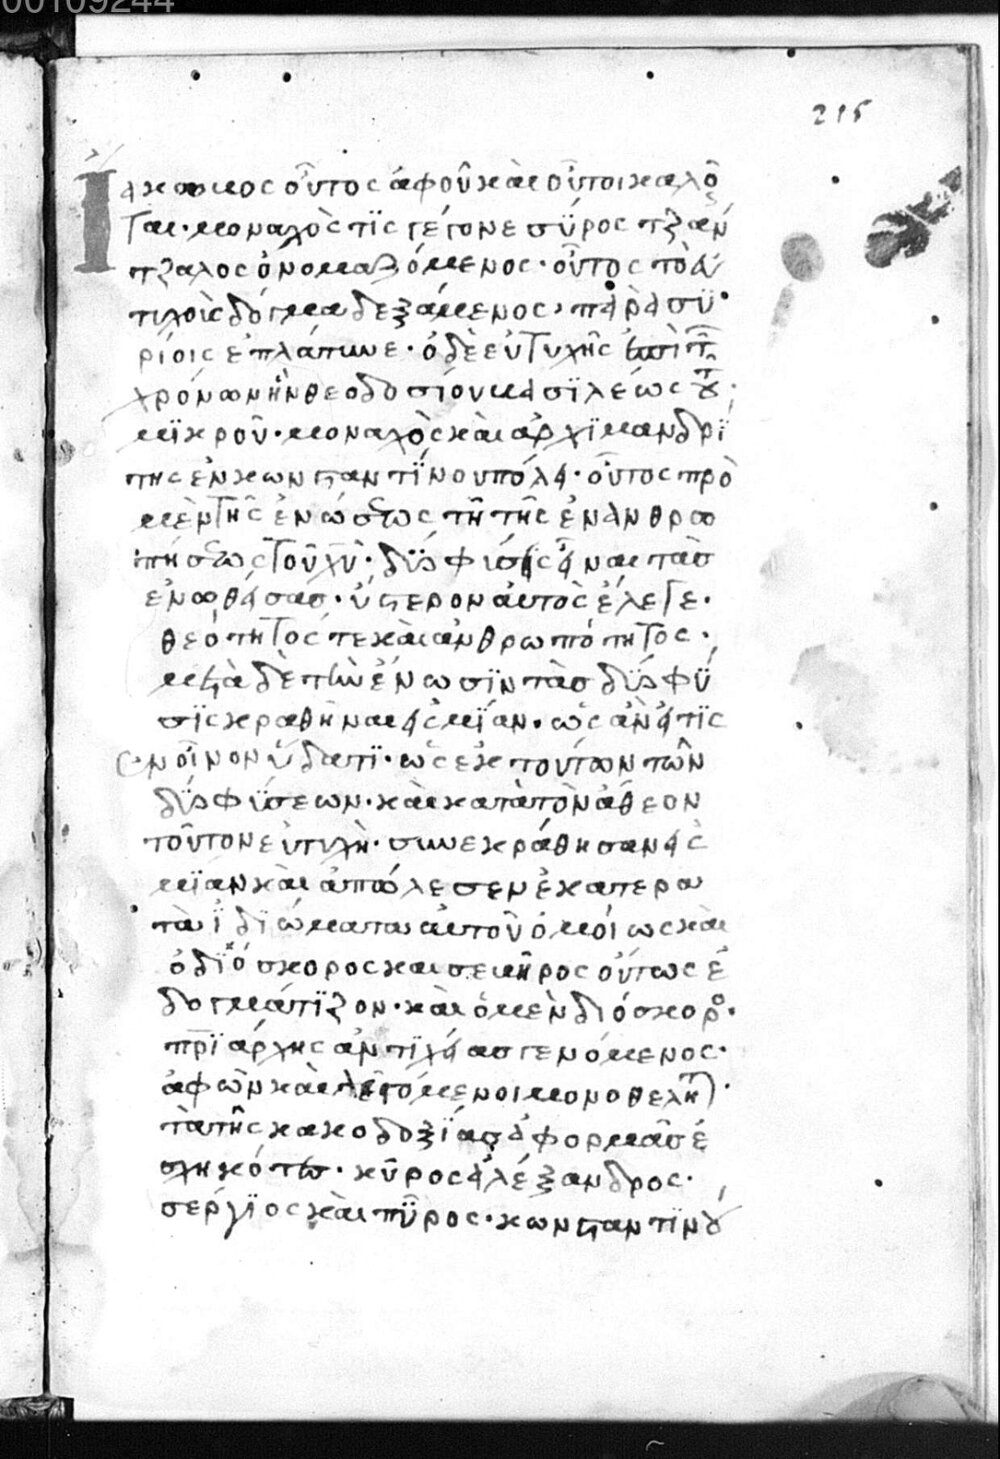 00109244
215
Ιάκωβος οὗτος ἀφ οὗ καὶ οὗτοι καλοῦ
ται· μοναχὸς τῒς γέγονε σῦρος τζάν
τζαλος ὀνομαζόμενος· οὗτος τὸ ἀυ
τιχοὺς δόγμα δεξάμενος, παρὰ συ
ρίοις ἐπλάτυνε· ὁ δὲ εὐτυχῆς ἐπὶ τῶν
χρόνων ἦν θεοδοσίου βασϊλέως τοῦ
μϊκροῦ· μοναχὸς καὶ ἀρχϊμανδρϊ
της ἐν κωνσταντϊνουπόλει· οὗτος πρὸ
μὲν τῆς ἑνώσεως τῆ τῆς ἐνανθρω
πήσεως τοῦ χυ· δύο φύσεις εἶναι τὰσ
ἑνωθείσασ· ὕστερον αὐτὸς ἔλεγε·
θεότητος τε καὶ ἀνθρωπότητος·
μετὰ δὲ τὴν ἕνωσϊν τὰσ δύο φύ
σϊς κραθῆναι εἰς μϊαν· ὡς ἀν εἴ τϊς
οἶνον ὕδατϊ· ὡς ἐκ τούτων τῶν
δύο φύσεων· καὶ κατὰ τὸν ἄθεον
τοῦτον εὐτυχῆ· συνεκράθησαν εἰς
μϊαν καὶ ἀπώλεσεν ἑκατερα
τὰ ἰδϊώματα αὐτοῦ ὁμοίως καὶ
ὁ δϊόσκορος και σεβῆρος οὕτως ἐ
δογμάτϊζον· καὶ ὁ μὲν διόσκορος·
πρϊάρχης ἀντϊχείασ γενόμενος·
ἀφ ὧν καὶ λεγόμενοι μονοθελῆται·
τὰ τῆς κακοδοξΐασ ἀφορμὰσ ἐ
σχηκότεσ· κῦρος ἀλέξανδρος·
σεργϊος καὶ πῦρος· κωνσταντϊνου